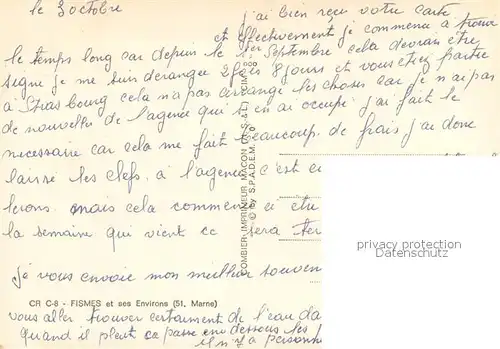 le 3 octobre
j'ai bien reçu votre carte
et effectivement je commence a trouver
le temps long car depuis le 1er Septembre cela devrait être
signé je me suis derangée 2 fois 8 jours et vous etiez partie
a Strasbourg cela n'a pas arrangé les choses car je n'ai pas
de nouvelle de l'agence qui s'en ai occupé j'ai fait le
necessaire car cela me fait beaucoup de frais j'ai donc
laissé les clefs a l'agence c'est
mais cela
la semaine qui vient ce sera
je vous envoie mon meilleur souven
CR C-8 - FISMES et ses Environs (51, Marne)
vous aller trouver certainement de l'eau da
Quand il pleut ca passe en dessous les
il n'y a personn
COMBIER IMPRIMEUR MACON
© by S.P.A.D.E.M.
privacy protection
Datenschutz